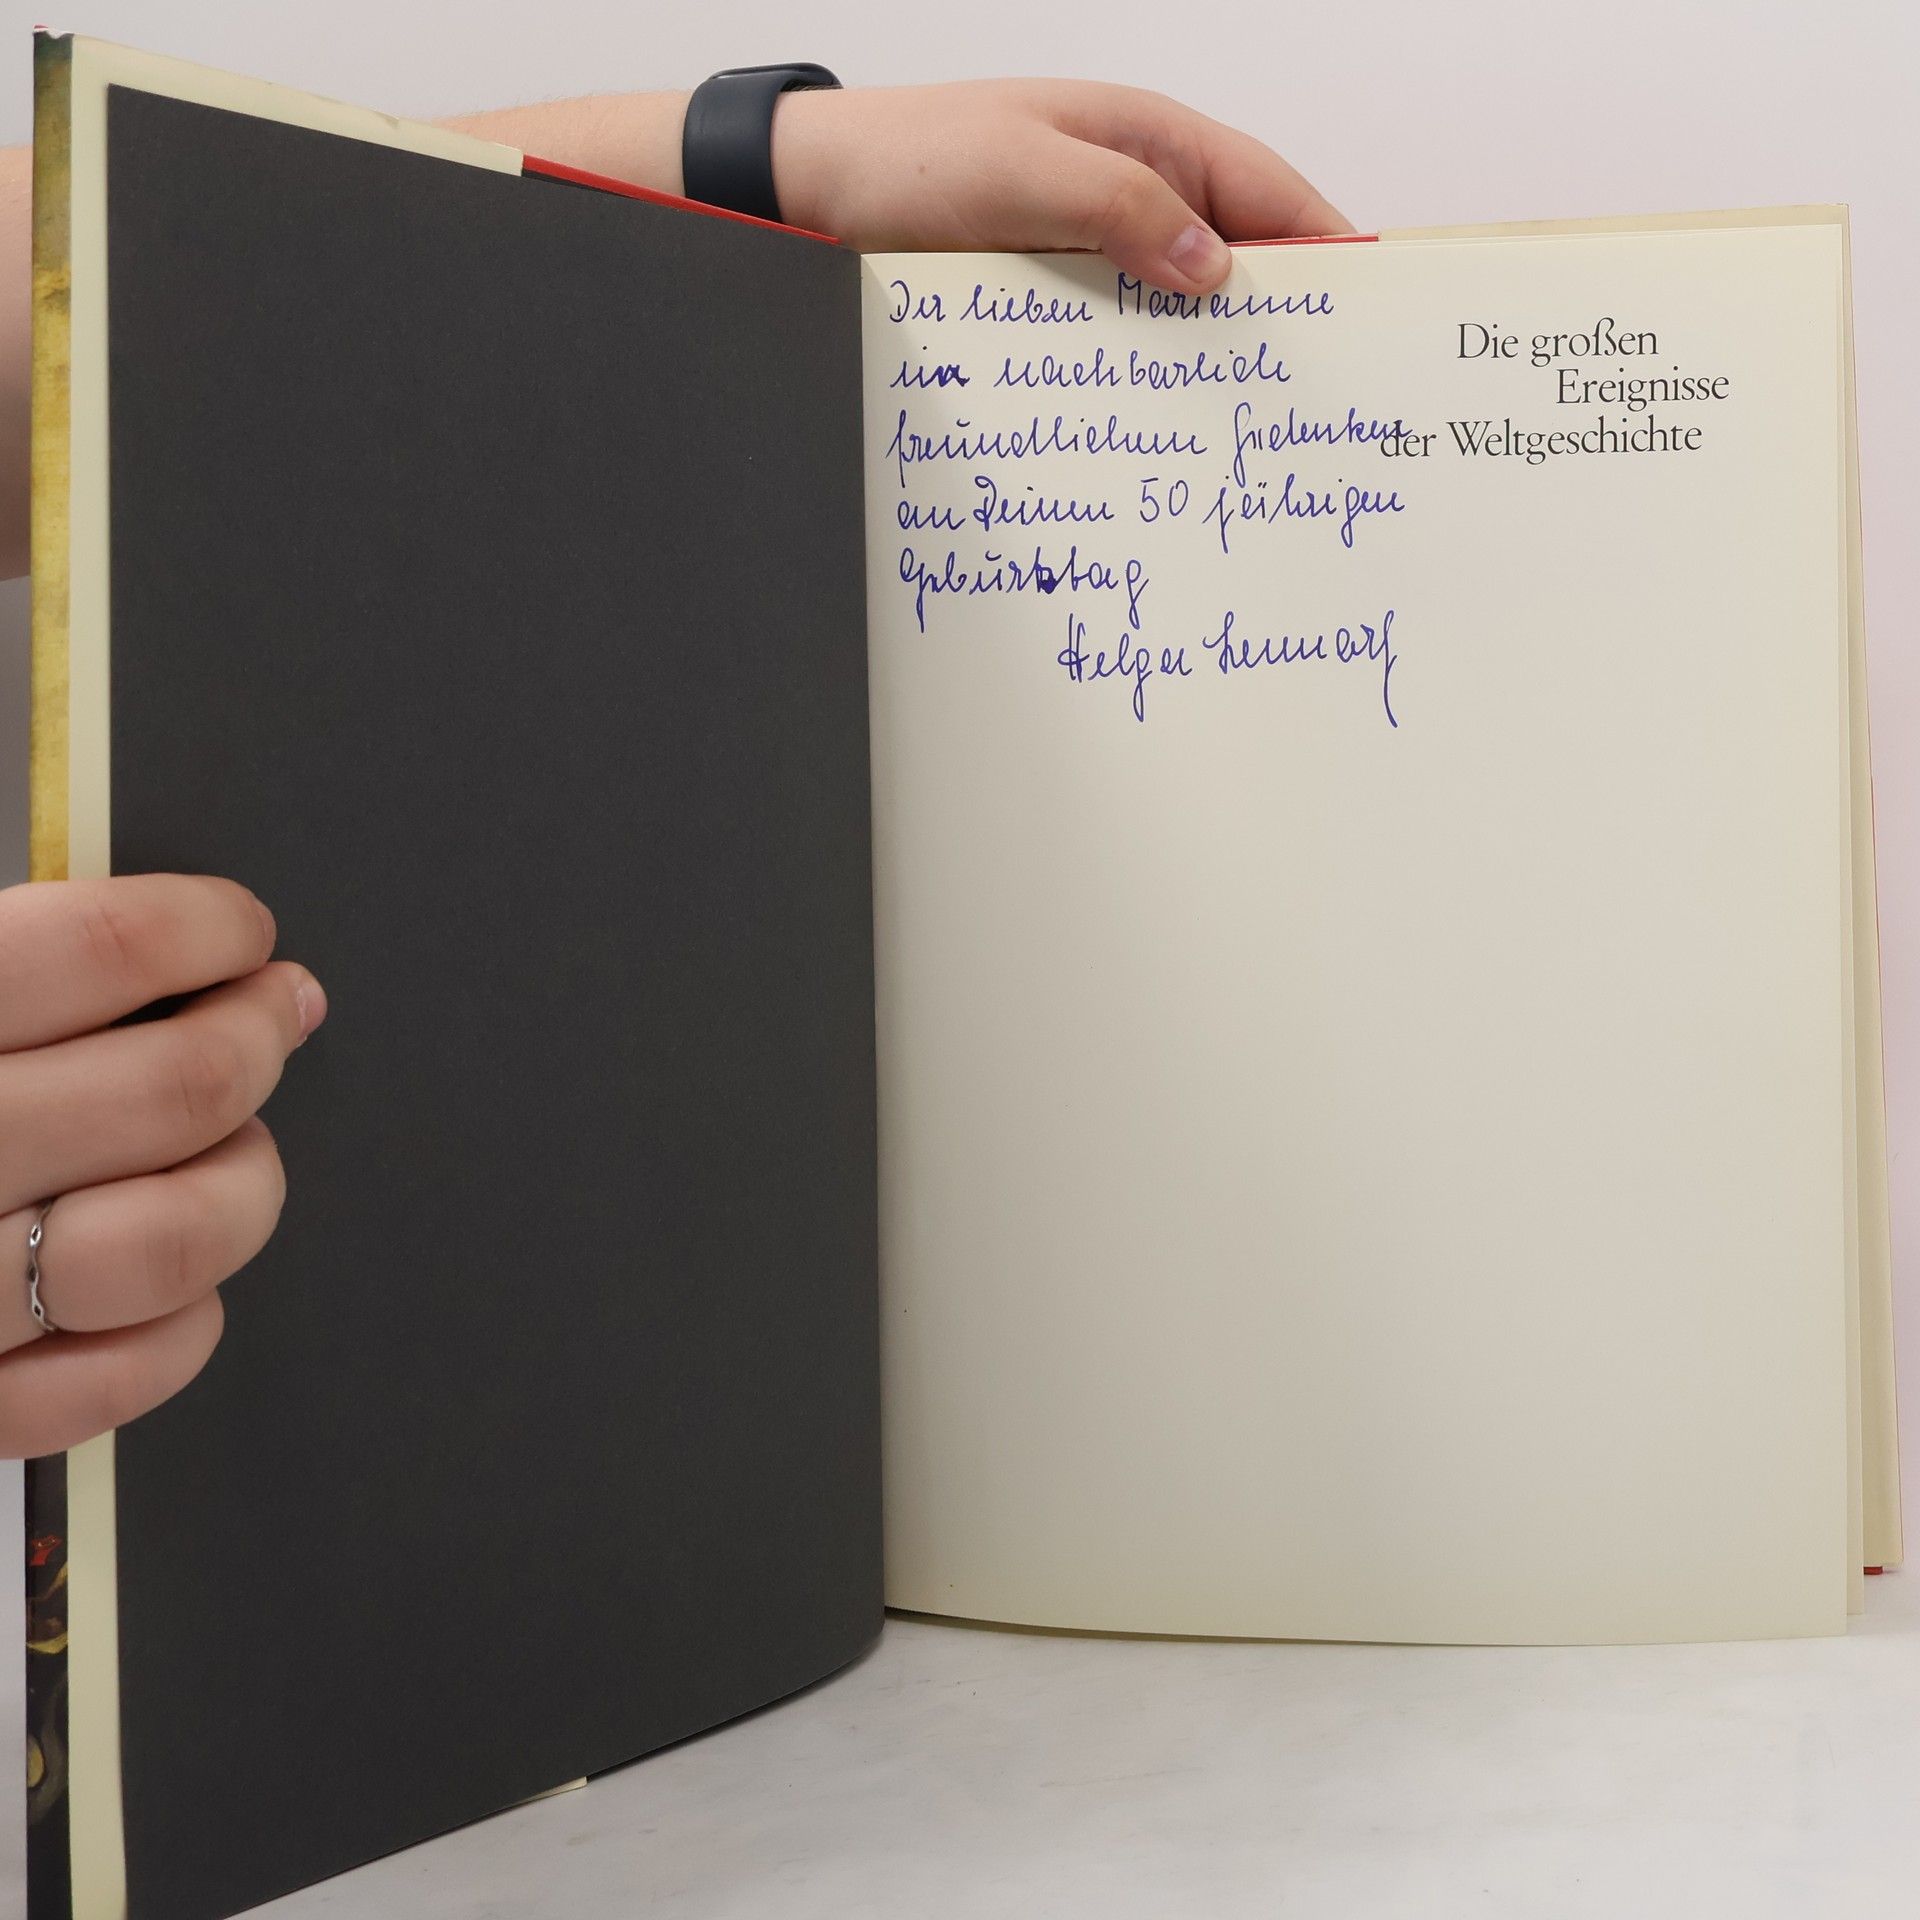 Der lieben Marianne
in nachbarlich
freundlichem Gedenken
an Deinen 50 jährigen
Geburtstag
Helga Lennarf
Die großen
Ereignisse
der Weltgeschichte